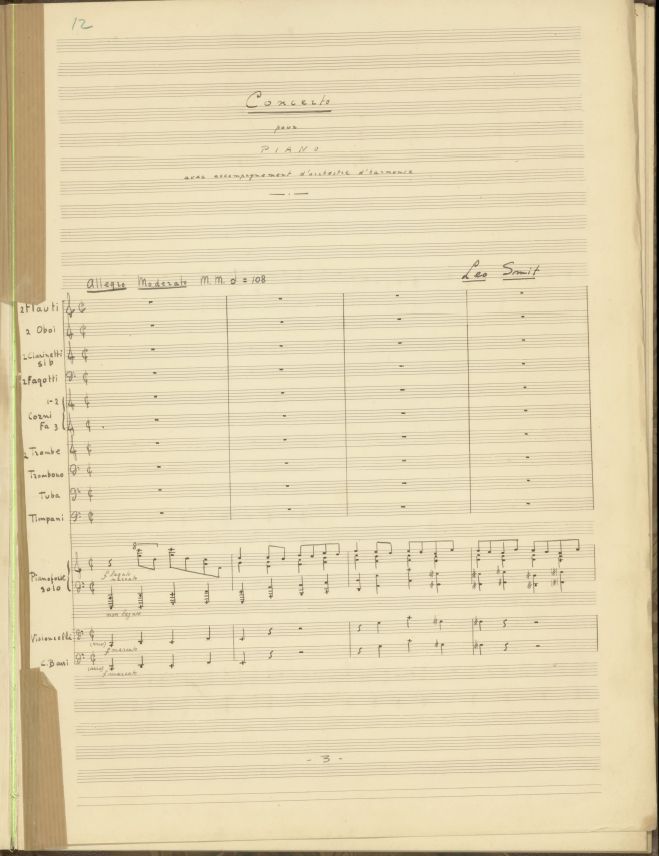 12
Concerto
pour
PIANO
avec accompagnement d'orchestre d'harmonie
Leo Smit
Allegro Moderato M.M. 𝅗𝅥 = 108
2 Flauti
2 Oboi
2 Clarinetti
si b
2 Fagotti
1-2
Corni
Fa 3
2 Trombe
Trombono
Tuba
Timpani
8
Pianoforte
solo
f legato
marcato
non legato
Violoncelli
f marcato
C. Bassi
f marcato
- 3 -